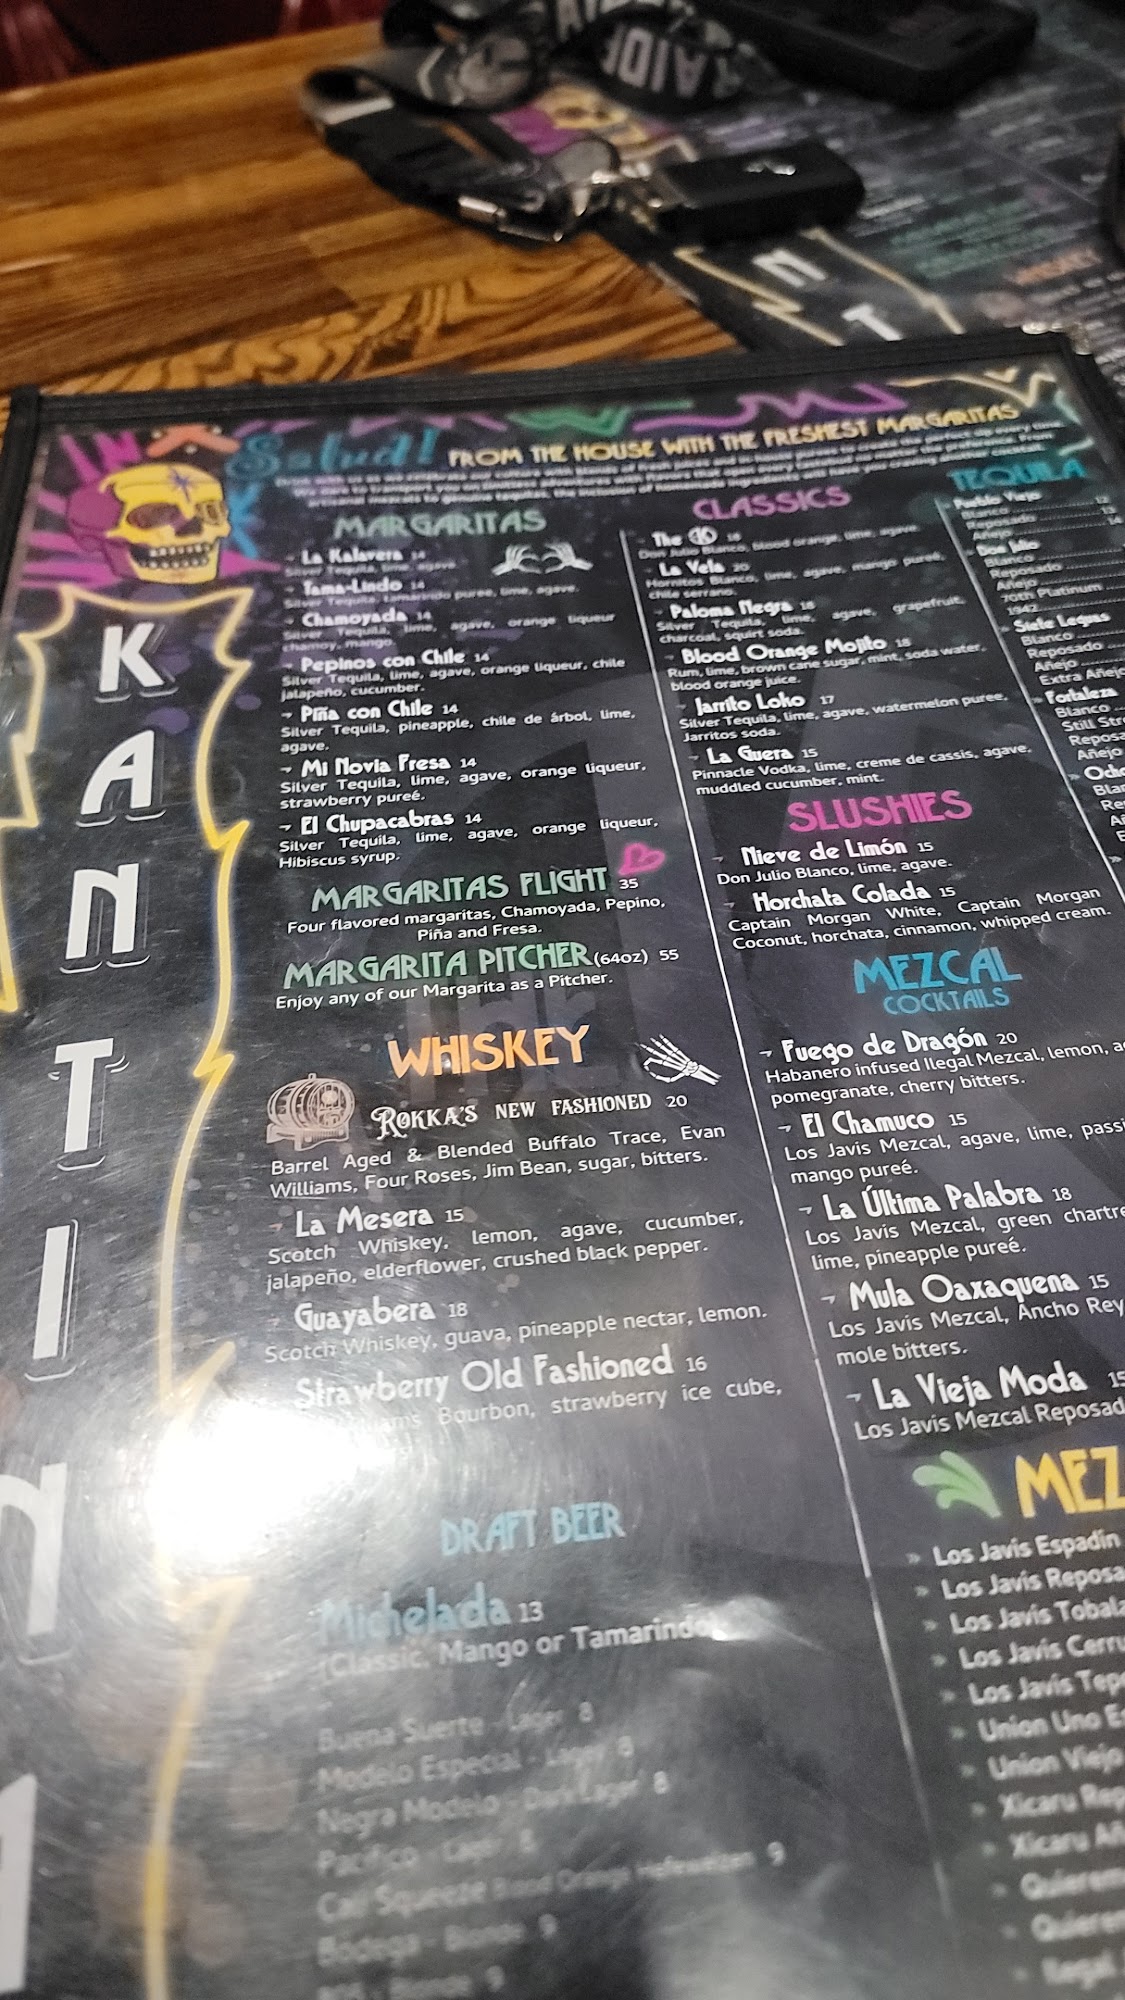 Salud! FROM THE HOUSE WITH THE FRESHEST MARGARITAS
KANTIN
MARGARITAS
La Kalavera 14
Silver Tequila, lime, agave.
Tama-Lindo 14
Silver Tequila, Tamarindo puree, lime, agave.
Chamoyada 14
Silver Tequila, lime, agave, orange liqueur
chamoy, mango.
Pepinos con Chile 14
Silver Tequila, lime, agave, orange liqueur, chile
jalapeño, cucumber.
Piña con Chile 14
Silver Tequila, pineapple, chile de árbol, lime,
agave.
Mi Novia Fresa 14
Silver Tequila, lime, agave, orange liqueur,
strawberry pureé.
El Chupacabras 14
Silver Tequila, lime, agave, orange liqueur,
Hibiscus syrup.
MARGARITAS FLIGHT 35
Four flavored margaritas, Chamoyada, Pepino,
Piña and Fresa.
MARGARITA PITCHER (64oz) 55
Enjoy any of our Margarita as a Pitcher.
WHISKEY
ROKKA'S NEW FASHIONED 20
Barrel Aged & Blended Buffalo Trace, Evan
Williams, Four Roses, Jim Bean, sugar, bitters.
La Mesera 15
Scotch Whiskey, lemon, agave, cucumber,
jalapeño, elderflower, crushed black pepper.
Guayabera 18
Scotch Whiskey, guava, pineapple nectar, lemon.
Strawberry Old Fashioned 16
Bourbon, strawberry ice cube,
DRAFT BEER
Michelada 13
(Classic, Mango or Tamarindo
Buena Suerte - Lager 8
Modelo Especial - Lager 8
Negra Modelo - Dark Lager 8
Pacifico - Lager 8
Cali Squeeze Blood Orange Hefeweizen 9
Bodega - Blonde 9
Blonde 9
CLASSICS
The
Don Julio Blanco, blood orange, lime, agave.
La Vela 20
Hornitos Blanco, lime, agave, mango pureé,
chile serrano.
Paloma Negra 18
Silver Tequila, lime, agave, grapefruit,
charcoal, squirt soda.
Blood Orange Mojito 18
Rum, lime, brown cane sugar, mint, soda water,
blood orange juice.
Jarrito Loko 17
Silver Tequila, lime, agave, watermelon puree,
Jarritos soda.
La Guera 15
Pinnacle Vodka, lime, creme de cassis, agave,
muddled cucumber, mint.
SLUSHIES
Nieve de Limón 15
Don Julio Blanco, lime, agave.
Horchata Colada 15
Captain Morgan White, Captain Morgan
Coconut, horchata, cinnamon, whipped cream.
MEZCAL
COCKTAILS
Fuego de Dragón 20
Habanero infused Ilegal Mezcal, lemon,
pomegranate, cherry bitters.
El Chamuco 15
Los Javis Mezcal, agave, lime,
mango pureé.
La Última Palabra 18
Los Javís Mezcal, green
lime, pineapple pureé.
Mula Oaxaquena 15
Los Javís Mezcal, Ancho
mole bitters.
La Vieja Moda 15
Los Javís Mezcal
MEZ
Los Javís Espadín
Los Javís
Los Javís
Los Javís
Los Javís
Union Uno
Union Viejo
Xicaru
Xicaru
TEQUILA
Pueblo Viejo
Blanco 12
Reposado 13
Añejo 14
Don Julio
Blanco
Reposado
Añejo
70th Platinum
1942
Siete Leguas
Blanco
Reposado
Añejo
Extra Añejo
Fortaleza
Blanco
Still
Añejo